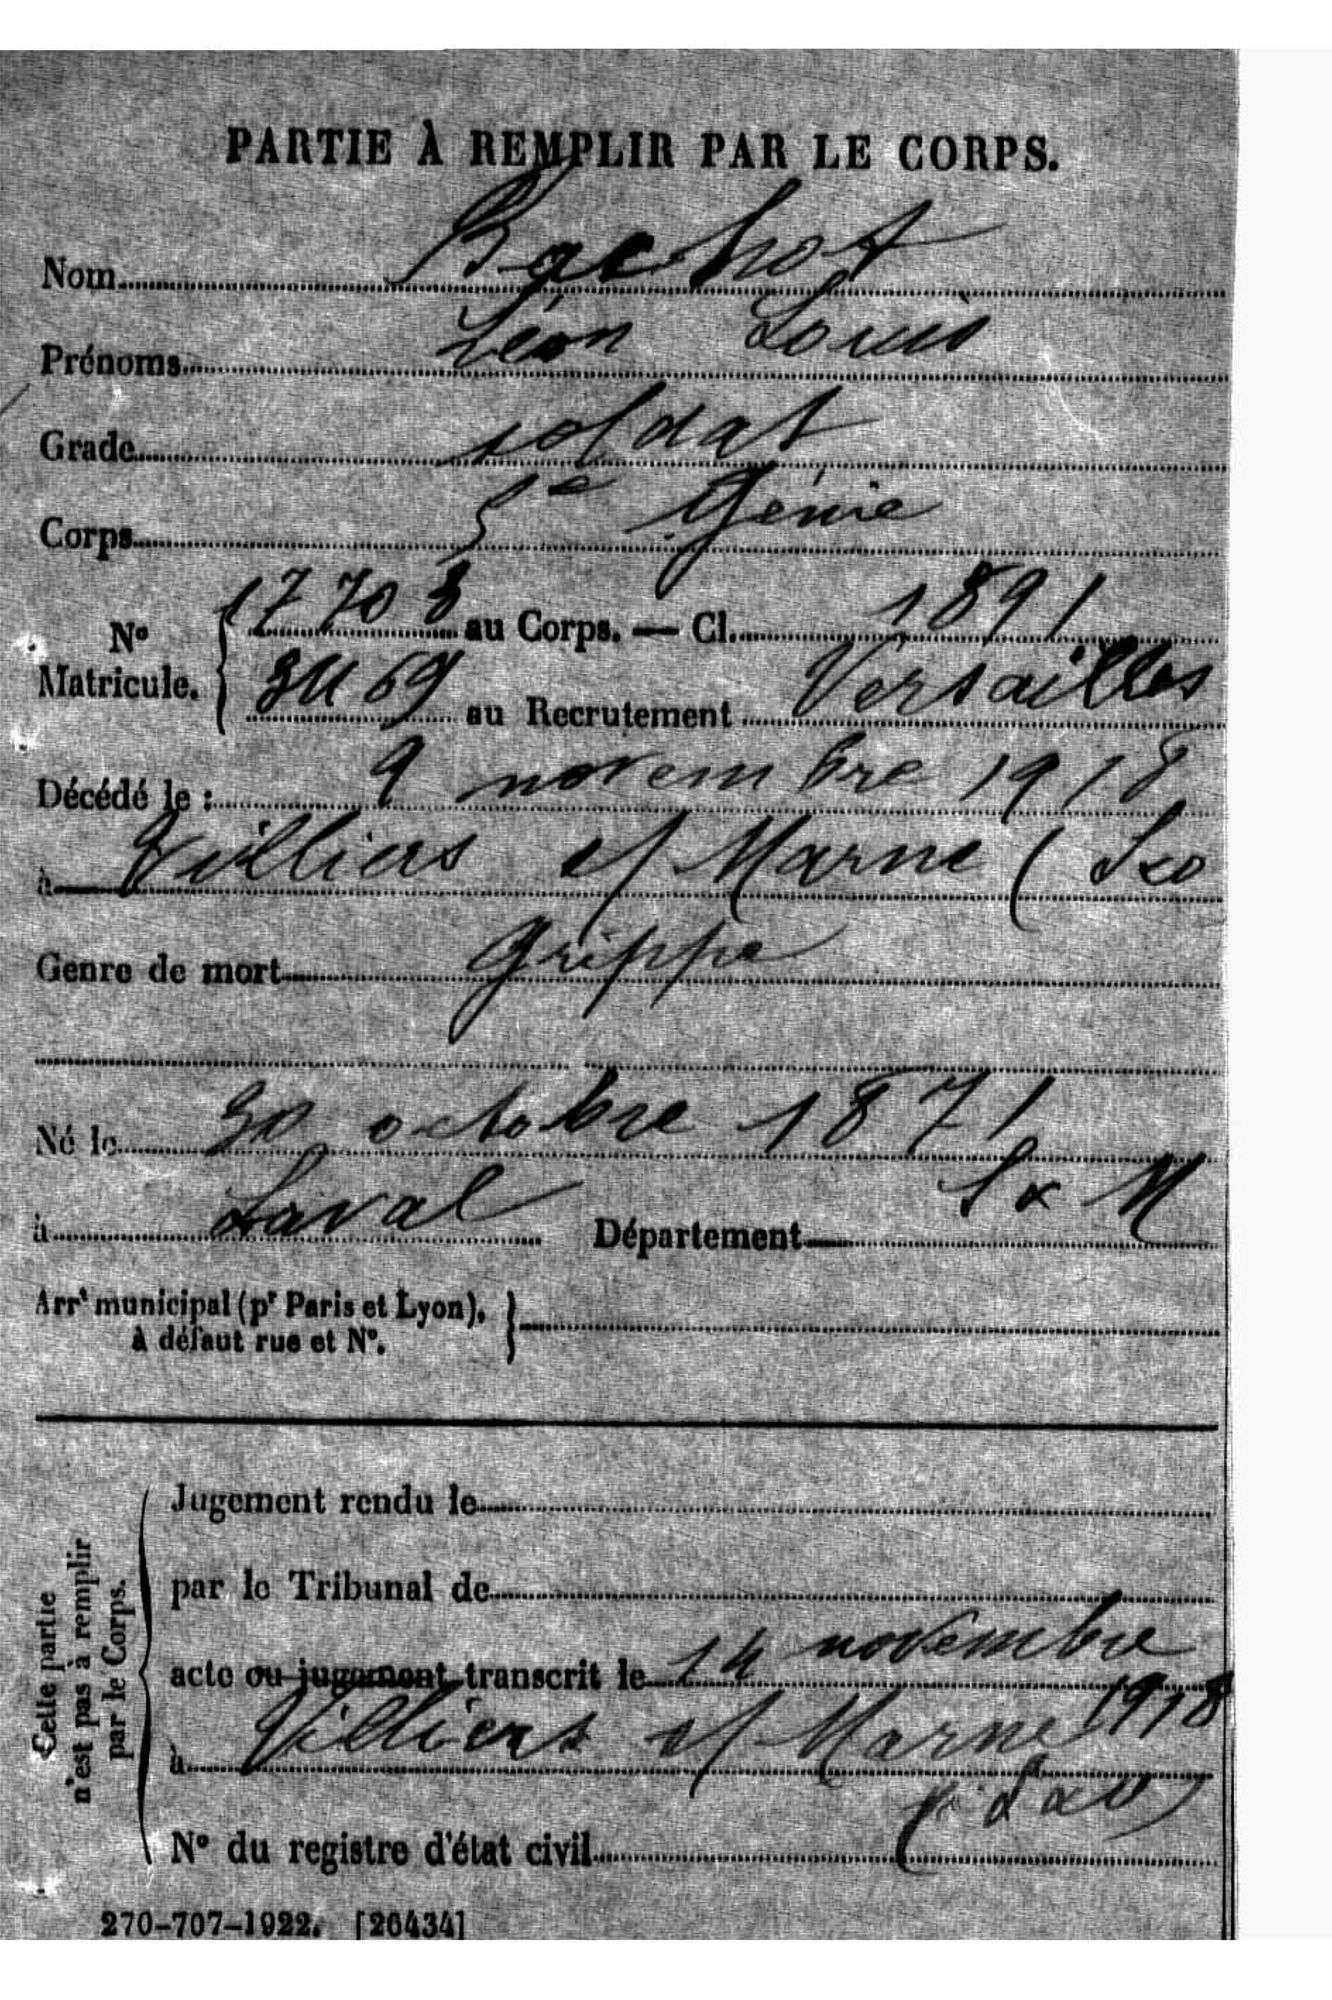 PARTIE À REMPLIR PAR LE CORPS.
Nom Bachot
Prénoms Léon Louis
Grade soldat
Corps 5e Génie
No Matricule. { 17703 au Corps. — Cl. 1891
3469 au Recrutement Versailles
Décédé le : 9 novembre 1918
à Villiers s/ Marne ( Sxo
Genre de mort Grippe
Né le 30 octobre 1871
à Laval Département S x M
Arrt municipal (pr Paris et Lyon), }
à défaut rue et No.
Cette partie
n'est pas à remplir
par le Corps.
Jugement rendu le
par le Tribunal de
acte ou jugement transcrit le 14 novembre
1918
à Villiers s/ Marne
(Sxo)
No du registre d'état civil
270-707-1922. [26434]